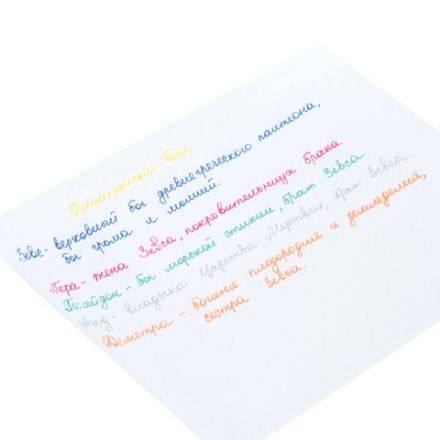 Олимпийские боги
Зевс - верховный бог древнегреческого пантеона,
бог грома и молний.
Гера - жена Зевса, покровительница брака.
Посейдон - бог морской стихии, брат Зевса.
Аид - владыка Царства Мертвых, брат Зевса
Деметра - богиня плодородия и земледелия,
сестра Зевса.